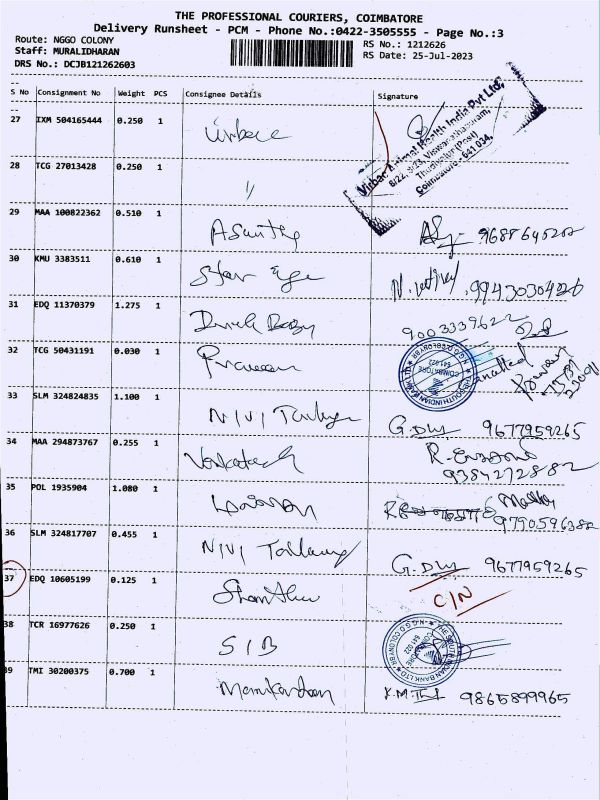 THE PROFESSIONAL COURIERS, COIMBATORE
Delivery Runsheet - PCM - Phone No.:0422-3505555 - Page No.:3
Route: NGGO COLONY
RS No.: 1212626
Staff: MURALIDHARAN
RS Date: 25-Jul-2023
DRS No.: DCJB121262603
S No Consignment No Weight PCS Consignee Details Signature
27 IXM 504165444 0.250 1 Virbac
Virbac Animal Health India Pvt Ltd,
Coimbatore - 641 034.
28 TCG 27013428 0.250 1 "
29 MAA 100822362 0.510 1
30 KMU 3383511 0.610 1 Star 99430304226
31 EDQ 11370379 1.275 1 9003339622
32 TCG 50431191 0.030 1 Praveen
THE SOUTH INDIAN BANK LTD. COIMBATORE 641 022
33 SLM 324824835 1.100 1 NIVI G. 9677959265
34 MAA 294873767 0.255 1 Venkatesh R. 9384272882
35 POL 1935904 1.080 1 9790596382
36 SLM 324817707 0.455 1 NIVI G. 9677959265
37 EDQ 10605199 0.125 1 C/N
38 TCR 16977626 0.250 1 SIB
THE SOUTH INDIAN BANK LTD. N.G.G.O. COLONY COIMBATORE 641 022
39 TMI 30200375 0.700 1 Manikandan K.M. 9865899965